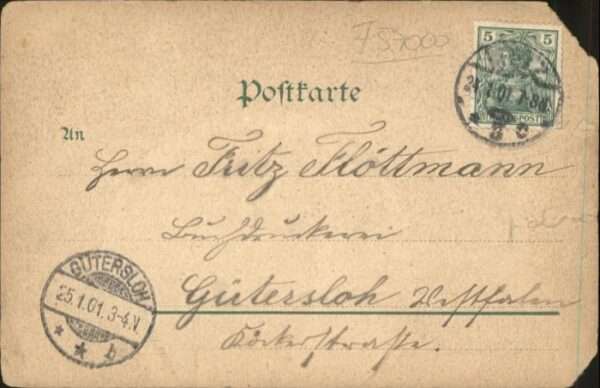 5 5
POST
24.1.01.7-8
F 57000
Postkarte
An
Herrn Fritz Flöttmann
Buchdruckerei
Gütersloh Westfalen
Kökerstraße.
GÜTERSLOH
25.1.01.3-4.V.
* * b